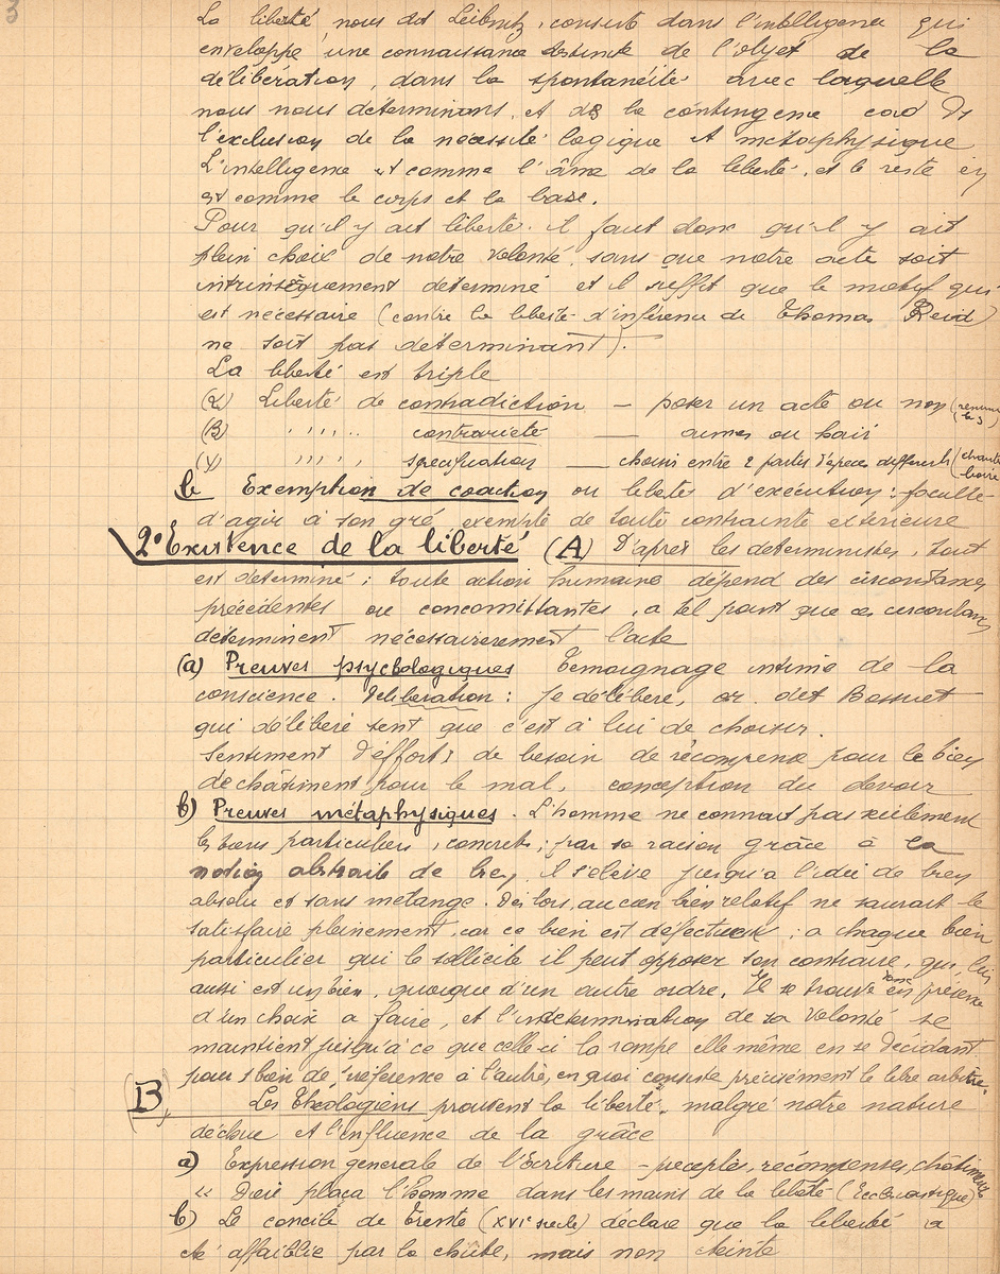 3
La liberté, nous dit Leibnitz, consiste dans l'intelligence qui
enveloppe une connaissance distincte de l'objet de la
délibération, dans la spontanéité avec laquelle
nous nous déterminons, et ds la contingence càd ds
l'exclusion de la nécessité logique et métaphysique
L'intelligence est comme l'âme de la liberté, et le reste en
est comme le corps et la base.
Pour qu'il y ait liberté il faut donc qu'il y ait
plein choix de notre volonté, sans que notre acte soit
intrinsèquement déterminé et il suffit que le motif qui
est nécessaire (contre la liberté d'indifférence de Thomas Reid)
ne soit pas déterminant).
La liberté est triple
(α) Liberté de contradiction — poser un acte ou non
(B) '' '' '' contrariété — aimer ou haïr
(γ) '' '' '' spécification — choisir entre 2 partis d'espèces différents (chanter boire
b Exemption de coaction ou liberté d'exécution : faculté
d'agir à son gré exempte de toute contrainte extérieure
2° Existence de la liberté (A) D'après les déterministes, tout
est déterminé : toute action humaine dépend des circonstances
précédentes ou concomittantes, a tel point que ces circonstances
déterminent nécessairerement l'acte
(a) Preuves psychologiques Témoignage intime de la
conscience. Délibération : Je délibère, or dit Bossuet
qui délibère sent que c'est à lui de choisir.
Sentiment d'effort; de besoin de récompense pour le bien
de châtiment pour le mal, conception du devoir
b) Preuves métaphysiques. L'homme ne connait pas seulement
les biens particuliers, concrets; par sa raison grâce à la
notion abstraite de bien, il s'élève jusqu'à l'idée de bien
absolu et sans mélange. Dès lors, aucun bien relatif ne saurait le
satisfaire pleinement, car ce bien est défectueux ; a chaque bien
particulier qui le sollicite il peut opposer son contraire, qui, lui
aussi est un bien, quoique d'un autre ordre. Il se trouve donc en présence
d'un choix a faire, et l'indétermination de sa volonté se
maintient jusqu'à ce que celle-ci la rompe elle même en se décidant
pour 1 bien de préférence à l'autre, en quoi consiste précisément le libre arbitre.
(B) Les Théologiens prouvent la liberté, malgré notre nature
déchue et l'influence de la grâce
a) Expression générale de l'Ecriture - préceptes, récompenses, châtiments
« Dieu plaça l'homme dans les mains de la liberté (Ecclésiastique)
b) Le concile de Trente (XVIe siècle) déclare que la liberté a
été affaiblie par la chûte, mais non éteinte